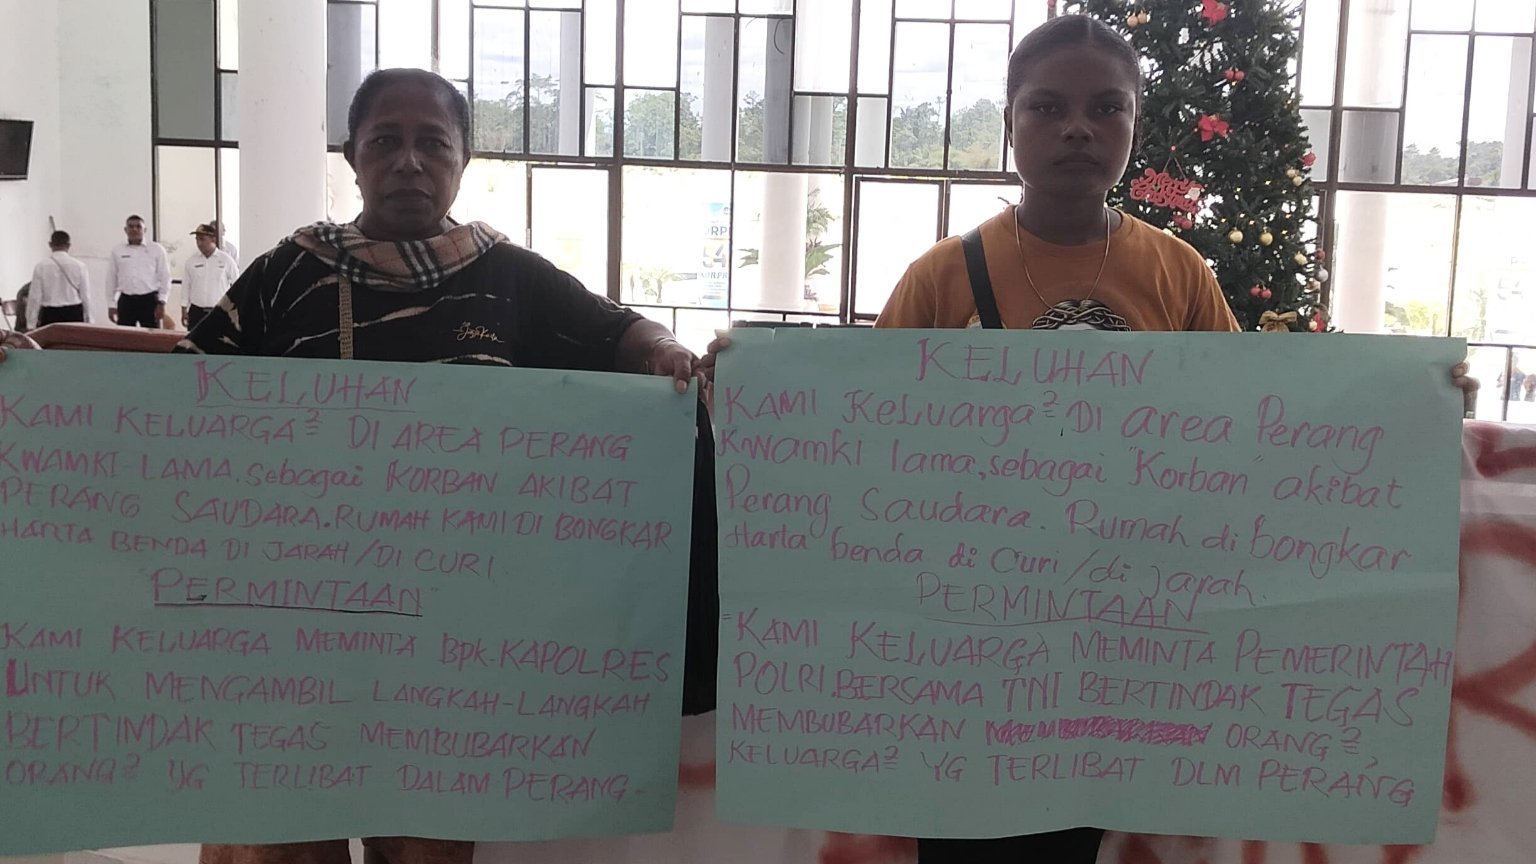 KELUHAN
KAMI KELUARGA² DI AREA PERANG
KWAMKI-LAMA. sebagai KORBAN AKIBAT
PERANG SAUDARA. RUMAH KAMI DI BONGKAR
HARTA BENDA DI JARAH/DI CURI.
"PERMINTAAN"
KAMI KELUARGA MEMINTA Bpk. KAPOLRES
UNTUK MENGAMBIL LANGKAH-LANGKAH
BERTINDAK TEGAS MEMBUBARKAN
ORANG² YG TERLIBAT DALAM PERANG-
KELUHAN
KAMI KeLuarga² DI area Perang
Kwamki lama, sebagai "Korban" akibat
Perang Saudara. Rumah di bongkar
Harta benda di curi/di jarah.
PERMINTAAN
"KAMI KELUARGA MEMINTA PEMERINTAH
POLRI. BERSAMA TNI BERTINDAK TEGAS
MEMBUBARKAN ORANG²,
KELUARGA² YG TERLIBAT DLM PERANG
Merry
Christmas
KORPRI